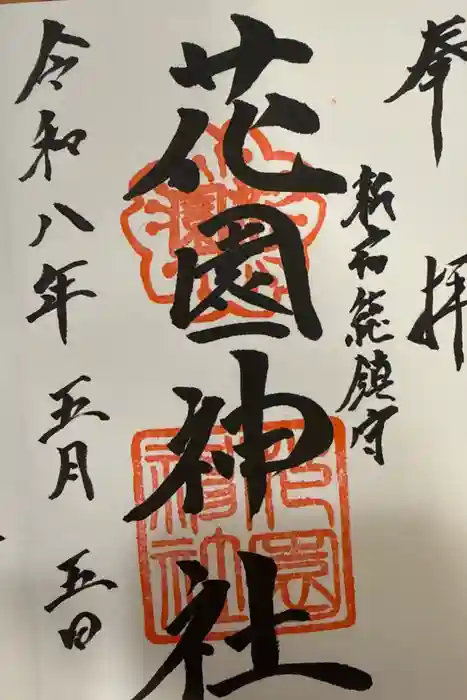 奉拝
新宿総鎮守
花園神社
令和八年五月五日
花園神社